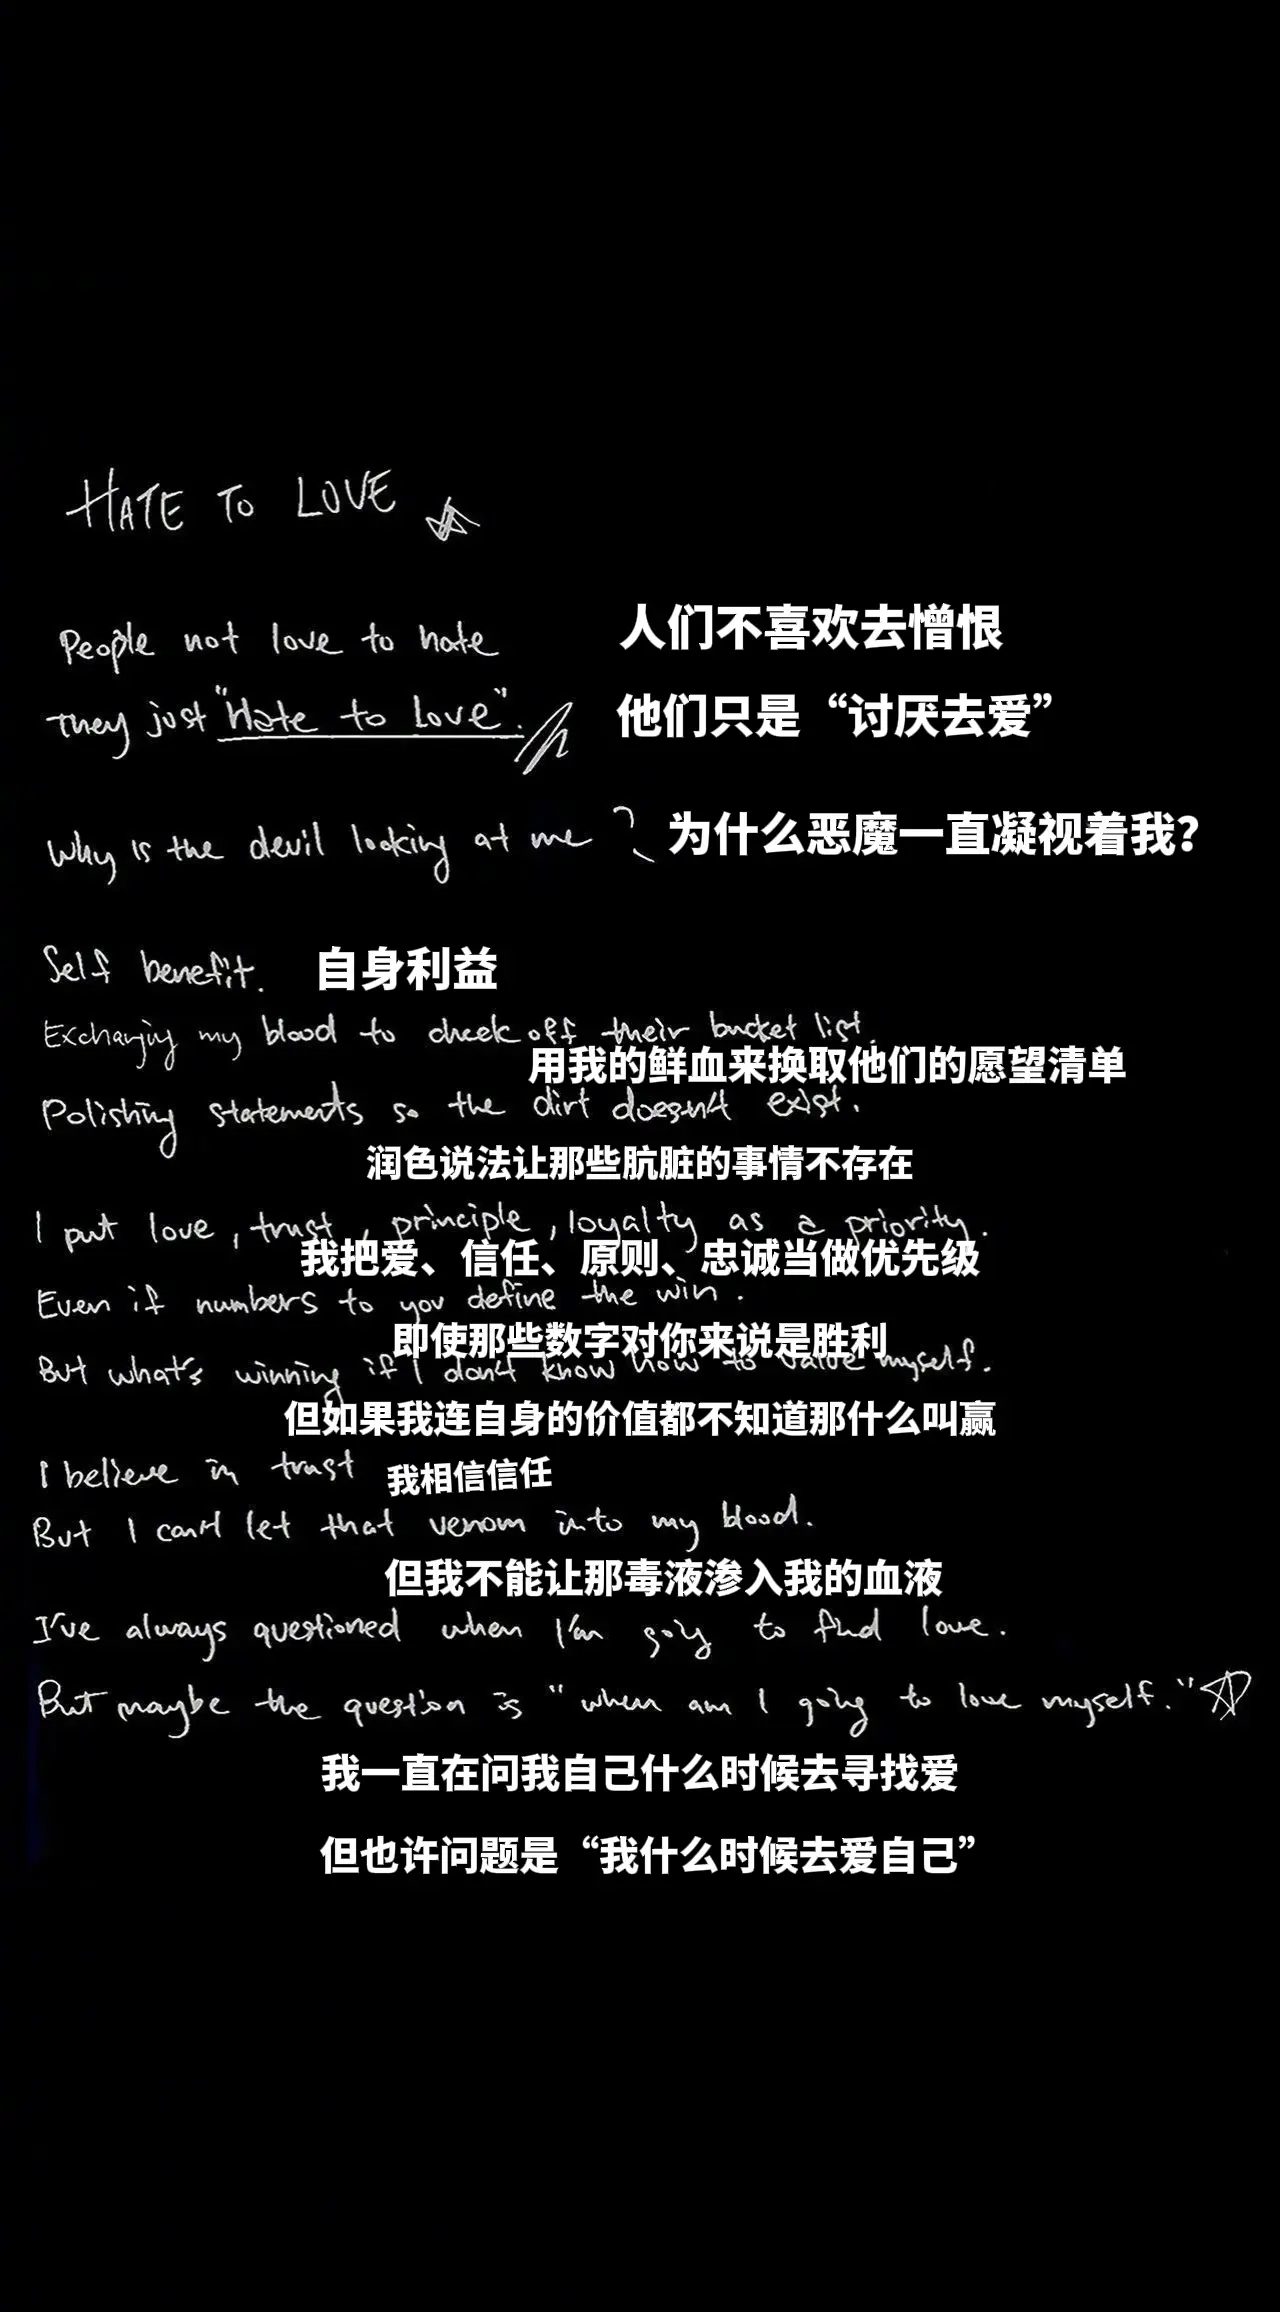 HATE TO LOVE
People not love to hate
人们不喜欢去憎恨
They just "Hate to Love".
他们只是“讨厌去爱”
Why is the devil looking at me?
为什么恶魔一直凝视着我？
Self benefit.
自身利益
Exchanging my blood to check off their bucket list.
用我的鲜血来换取他们的愿望清单
Polishing statements so the dirt doesn't exist.
润色说法让那些肮脏的事情不存在
I put love, trust, principle, loyalty as a priority.
我把爱、信任、原则、忠诚当做优先级
Even if numbers to you define the win.
即使那些数字对你来说是胜利
But what's winning if I don't know how to value myself.
但如果我连自身的价值都不知道那什么叫赢
I believe in trust
我相信信任
But I can't let that venom into my blood.
但我不能让那毒液渗入我的血液
I've always questioned when I'm going to find love.
But maybe the question is "when am I going to love myself."
我一直在问我自己什么时候去寻找爱
但也许问题是“我什么时候去爱自己”